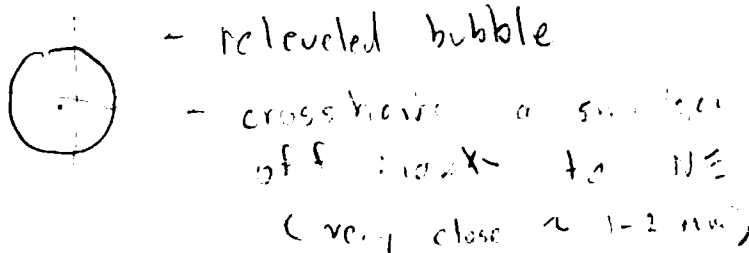 - releveled bubble
- crosshairs a
off mark to NE
(very close ~ 1-2 mm)